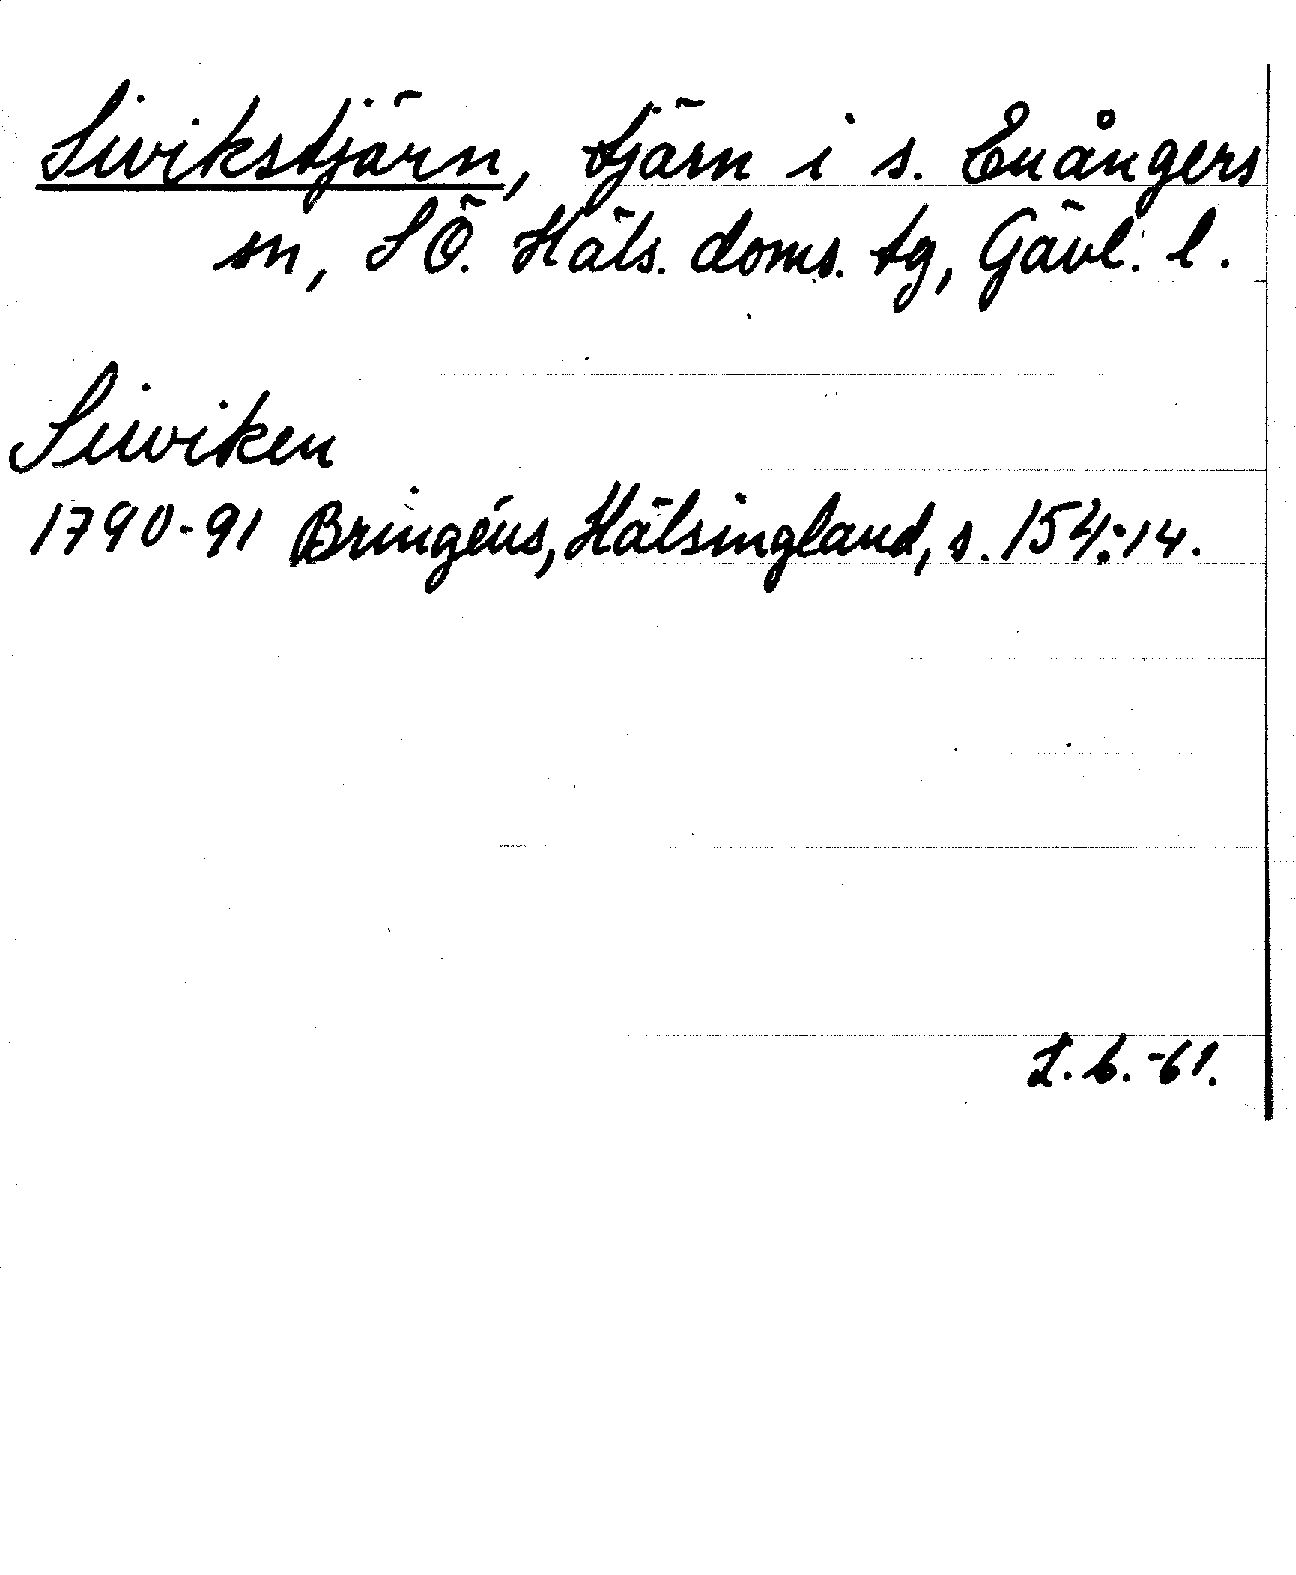 Sivikstjärn, tjärn i s. Enångers
sn, SÖ. Häls. doms. tg, Gävl. l.
Siwiken
1790-91 Bringéus, Hälsingland, s. 154:14.
L.b.-61.